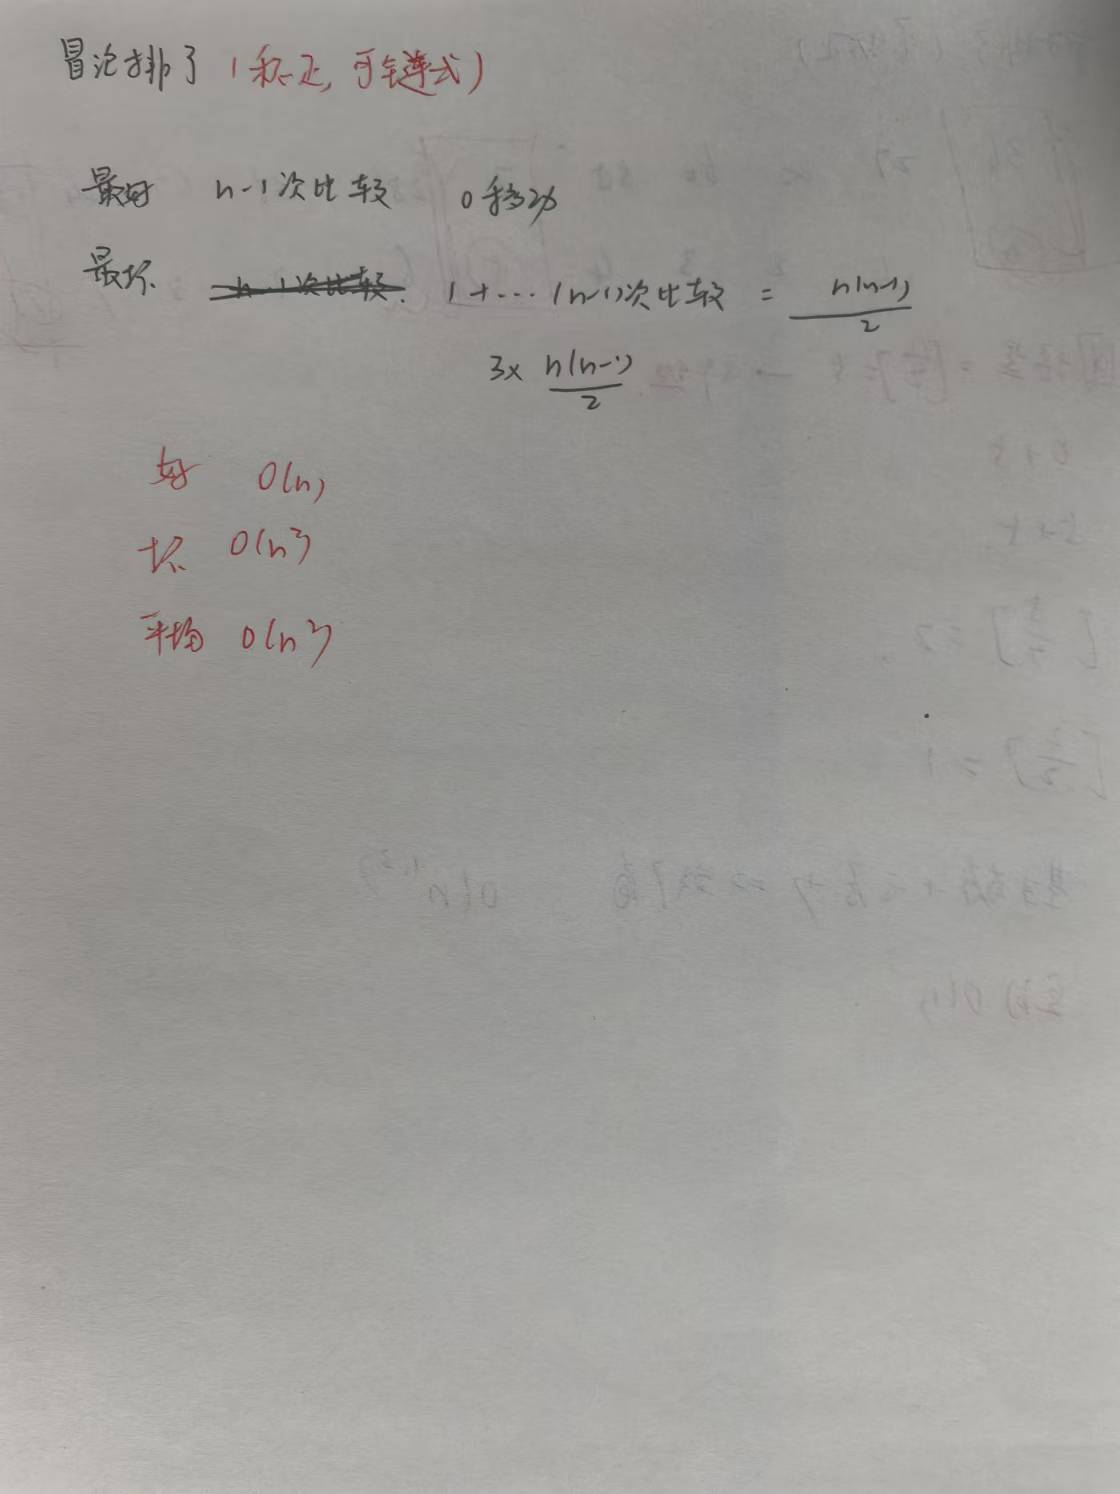 冒泡排了 (稳定, 可链式)
最好 n-1次比较 0移动
最坏 n-1次比较. 1+…(n-1)次比较 = n(n-1)/2
3× n(n-1)/2
好 O(n)
坏 O(n²)
平均 O(n²)